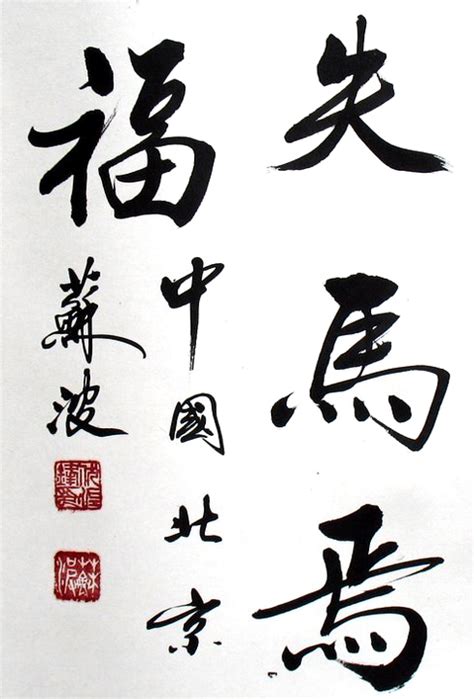 失馬焉
福
中國北京
蘇波